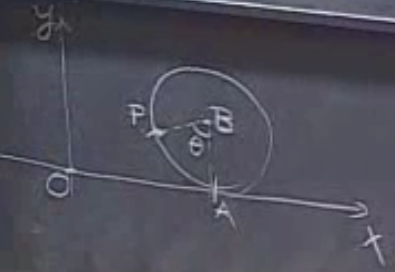 y
P
B
θ
O
A
x